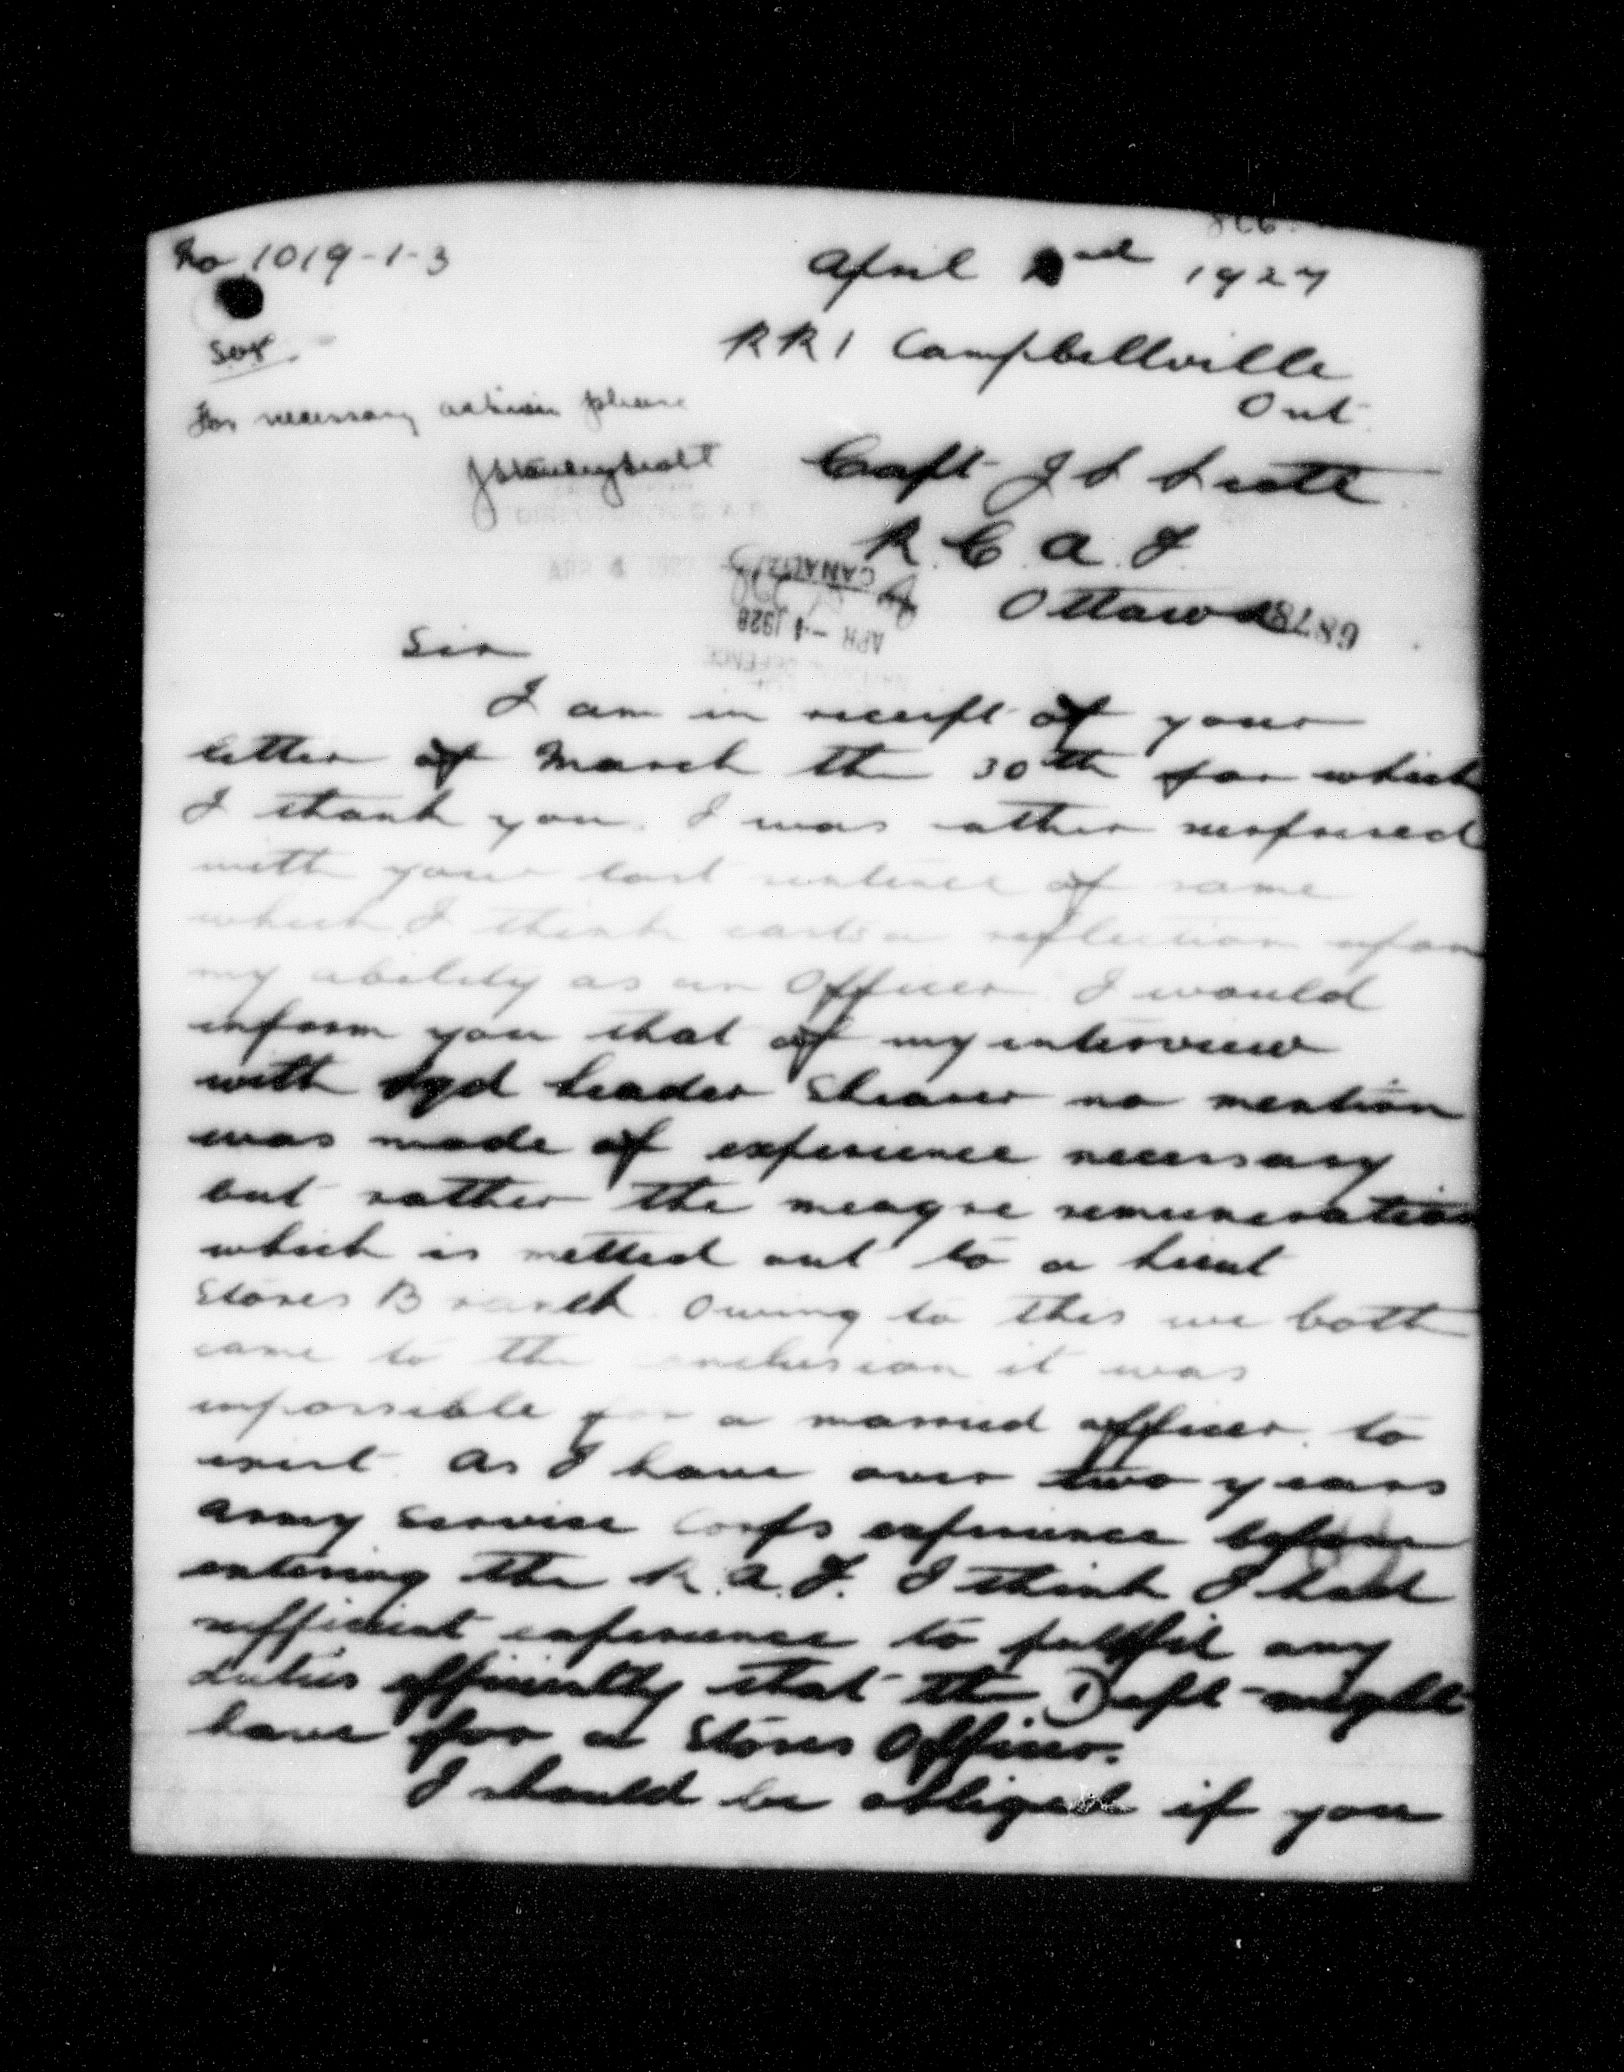 No 1019-1-3
April 2nd 1927
RR1 Campbellville
Ont.
For necessary action please
J Stanley Scott
Capt J S Scott
R. C. A. F
Ottawa
6878
CANADA
APR -4 1928
DEFENCE
Sir
I am in receipt of your
letter of March the 30th for which
I thank you. I was rather surprised
with your last sentence of same
which I think casts a reflection upon
my ability as an Officer. I would
inform you that of my interview
with Sqd Leader Shearer no mention
was made of experience necessary
but rather the meagre remuneration
which is metted out to a Lieut
Stores Branch. Owing to this we both
came to the conclusion it was
impossible for a married officer to
exist. As I have over two years
Army Service Corps experience before
entering the R.A.F. I think I had
sufficient experience to fullfil any
duties efficiently that the Dept might
have for a Stores Officer.
I should be obliged if you